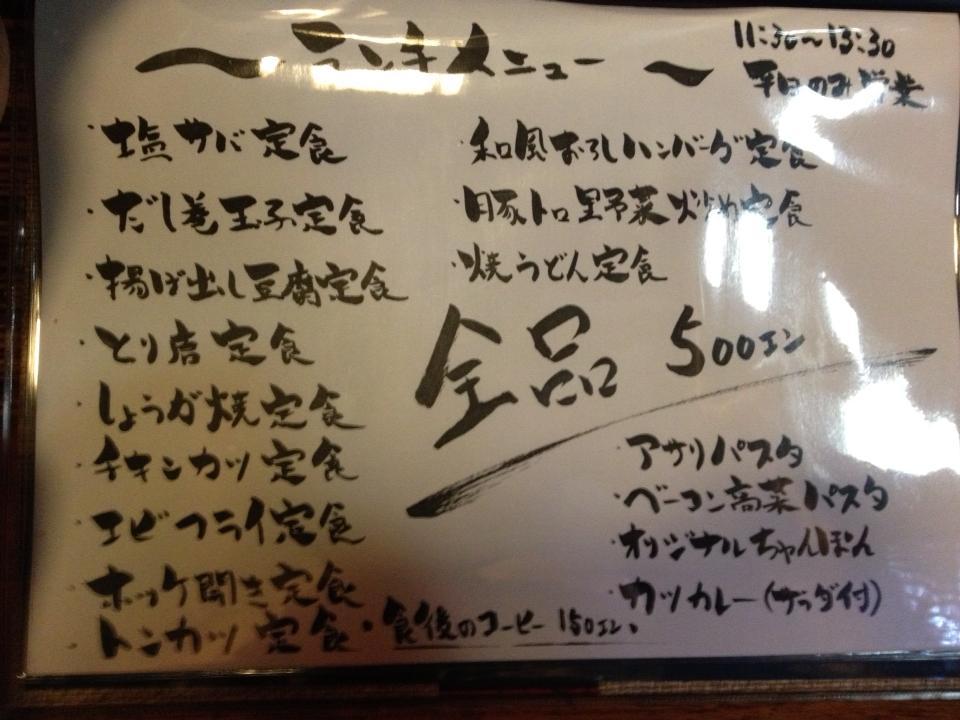 ～ランチメニュー～
11:30～13:30
平日のみ営業
・塩サバ定食
・だし巻玉子定食
・揚げ出し豆腐定食
・とり唐定食
・しょうが焼定食
・チキンカツ定食
・エビフライ定食
・ホッケ開き定食
・トンカツ定食
・和風おろしハンバーグ定食
・豚トロ野菜炒め定食
・焼うどん定食
全品 500エン
・アサリパスタ
・ベーコン高菜パスタ
・オリジナルちゃんぽん
・カツカレー(サラダ付)
・食後のコーヒー 150エン。